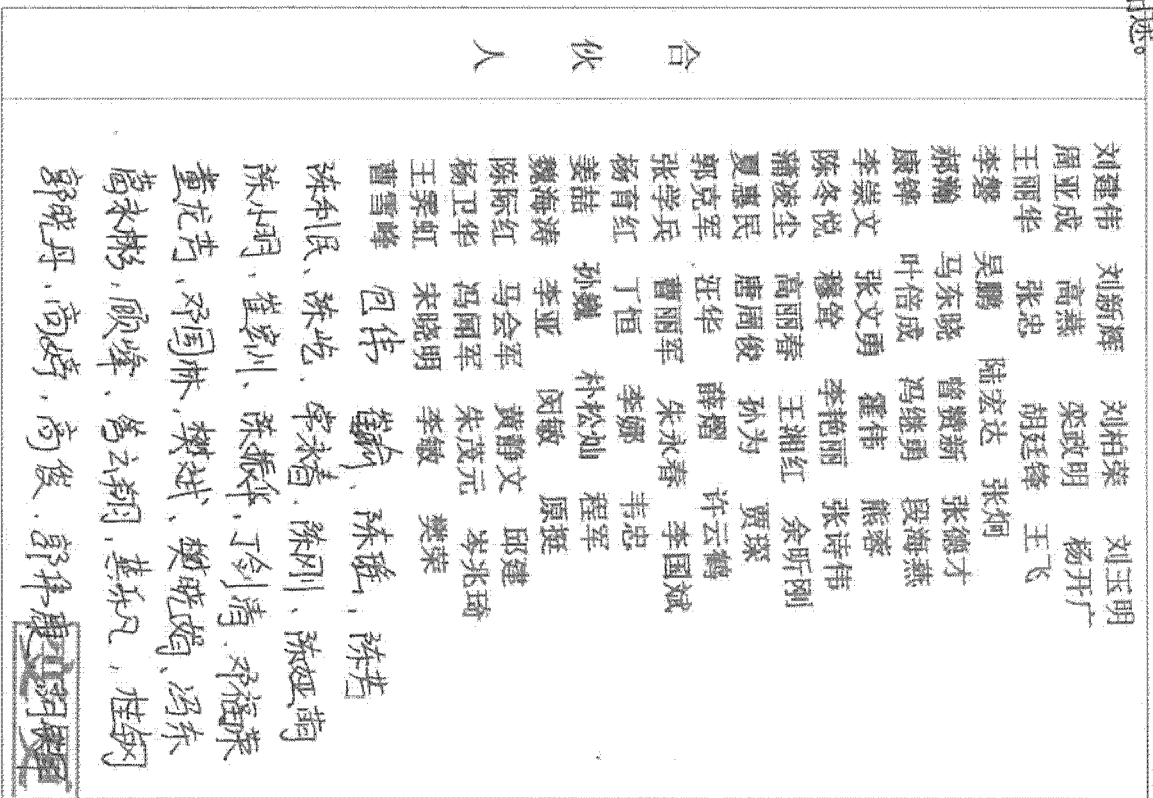 合伙人
刘建伟 刘新辉 刘柏荣 刘玉明
周亚成 高燕 栾政明 杨开广
王丽华 张忠 胡廷锋 王飞
李磐 吴鹏 陆宏达 张炯
郝瀚 马东晓 曾赞新 张德才
康铧 叶倍成 冯继勇 段海燕
李崇文 张文勇 霍伟 熊蓉
陈冬悦 穆耸 李艳丽 张诗伟
蒲凌尘 高丽春 王湘红 余昕刚
夏惠民 唐周俊 孙为 贾琛
郭克军 汪华 薛熠 许云鹤
张学兵 曹丽军 朱永春 李国斌
杨育红 丁恒 李娜 韦忠
姜喆 孙巍 朴松灿 程军
魏海涛 李亚 闵敏 原挺
陈际红 马会军 黄静文 邱建
杨卫华 冯闻军 朱茂元 岑兆琦
王霁虹 宋晓明 李敏 樊荣
曹雪峰 包伟 陈瑶、陈芳
陈利民、陈屹、常永春、陈刚、陈娅萌
陈小明、崔宏川、陈振华、丁剑清、邓福荣
董龙芳、邓国林、樊斌、樊晓娟、冯东
葛永彬、顾峰、管云翔、葛乐凡、桂钢
郭晓丹、商崎、商俊、郭伟康